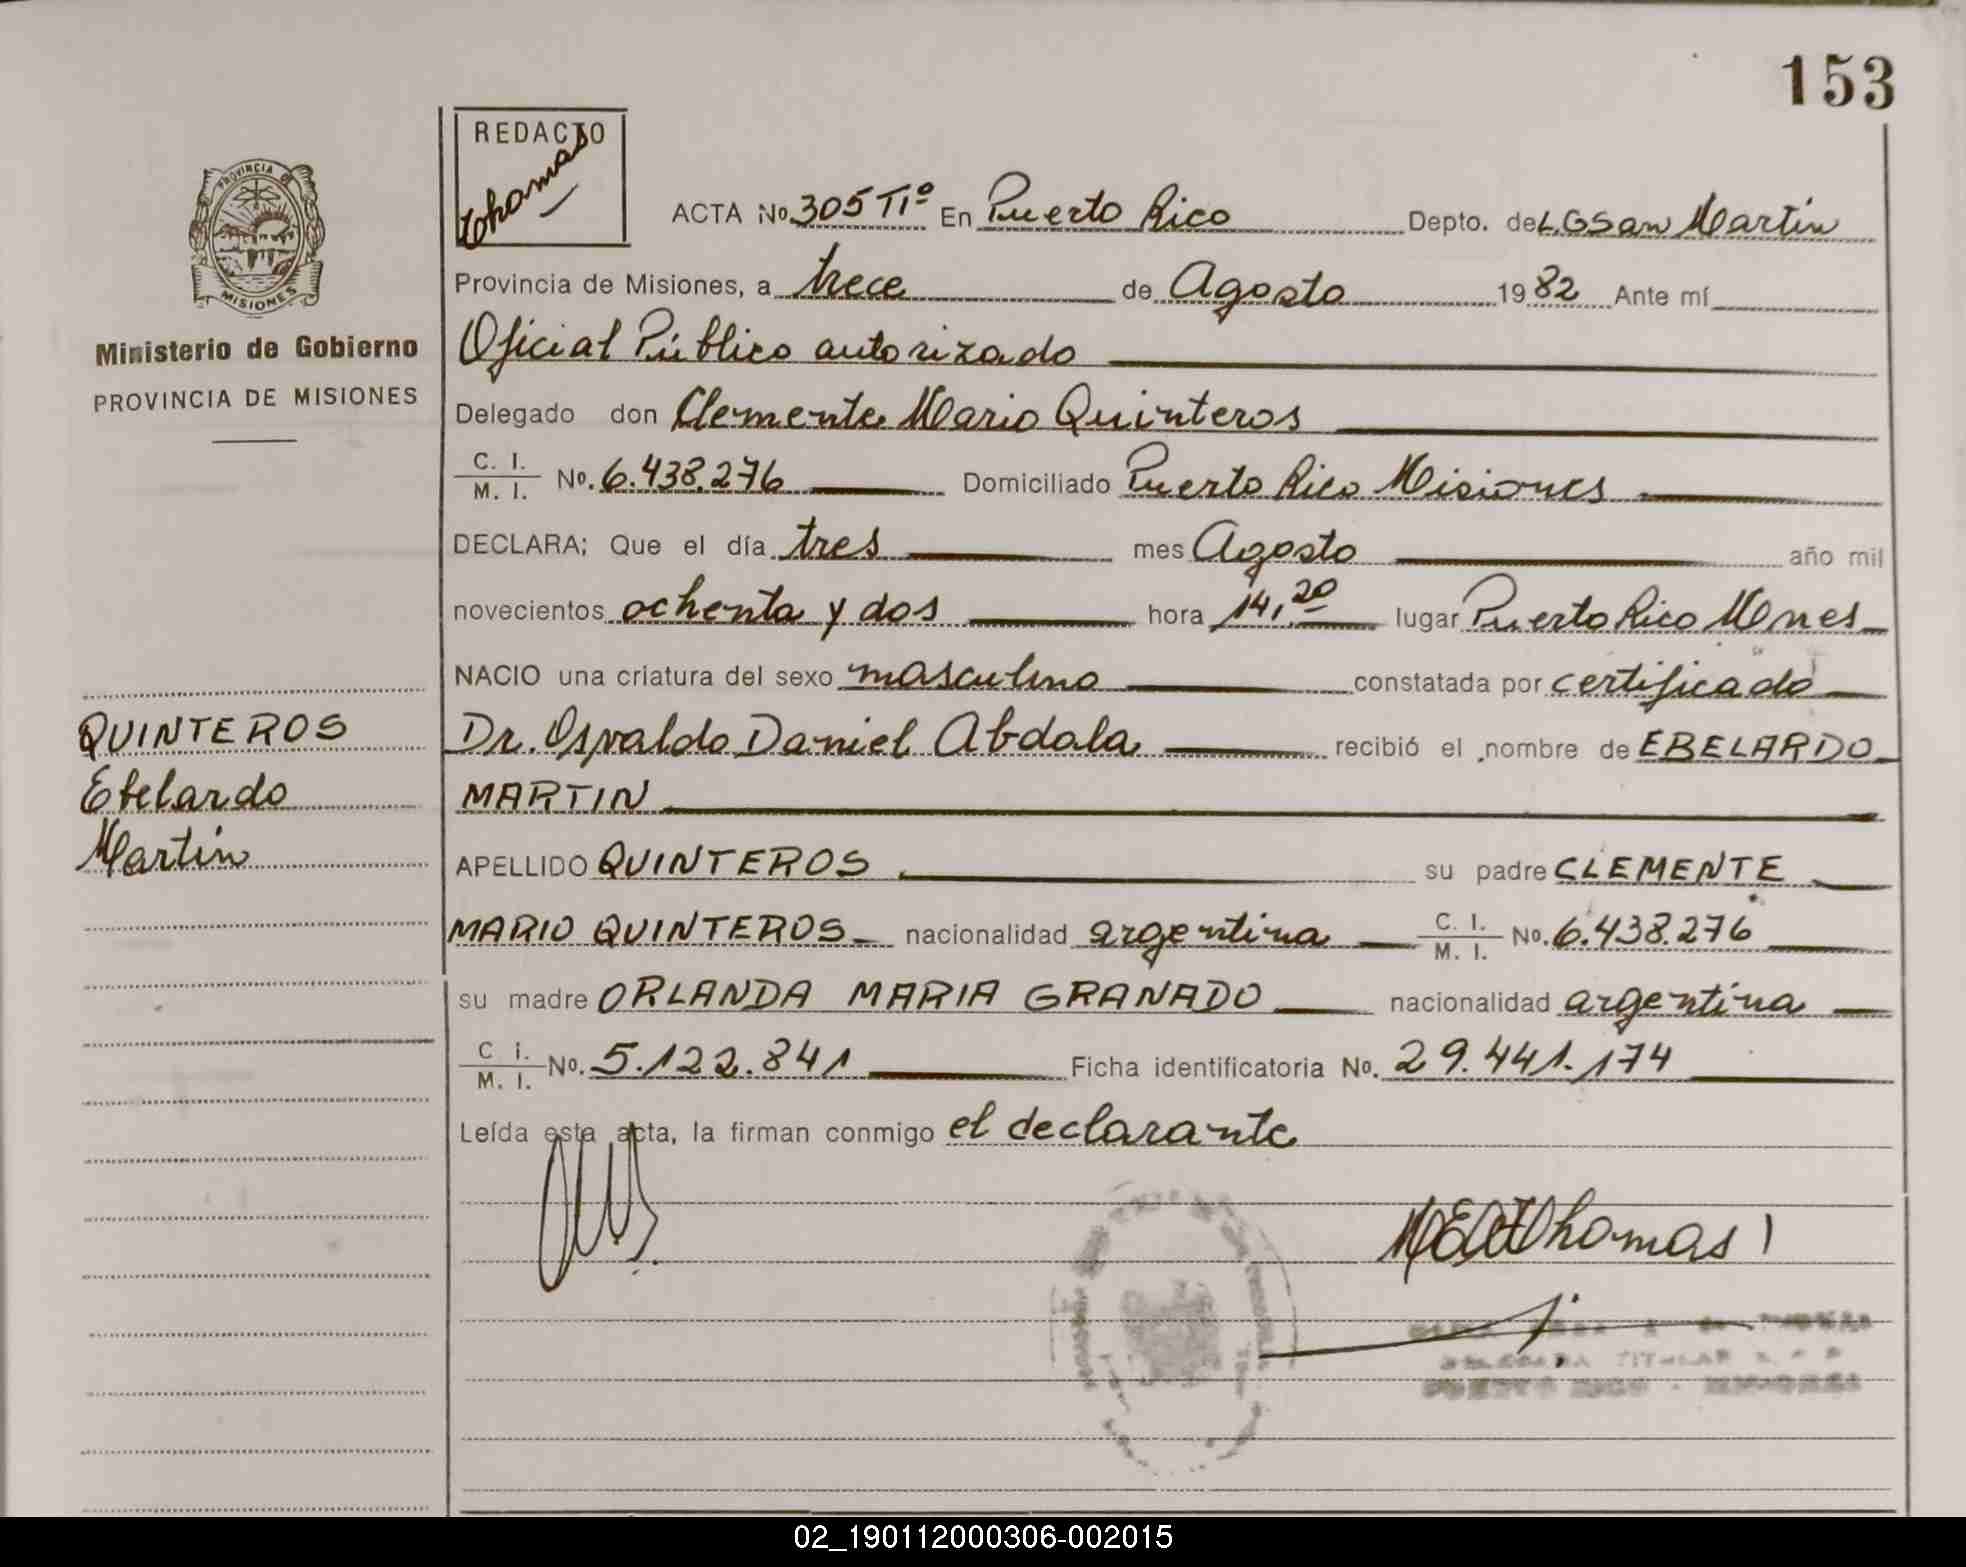 153
REDACTO
Thomas
ACTA No 305 TIº En Puerto Rico Depto. de L.G San Martín
PROVINCIA DE
MISIONES
Ministerio de Gobierno
PROVINCIA DE MISIONES
Provincia de Misiones, a trece de Agosto 1982 Ante mí
Oficial Público autorizado
Delegado don Clemente Mario Quinteros
C. I. / M. I. No. 6.438.276 Domiciliado Puerto Rico Misiones
DECLARA; Que el día tres mes Agosto año mil
novecientos ochenta y dos hora 14,20 lugar Puerto Rico Mnes
NACIO una criatura del sexo masculino constatada por certificado
Dr. Osvaldo Daniel Abdala recibió el nombre de EBELARDO
MARTIN
QUINTEROS
Ebelardo
Martín
APELLIDO QUINTEROS su padre CLEMENTE
MARIO QUINTEROS nacionalidad argentina C. I. / M. I. No. 6.438.276
su madre ORLANDA MARIA GRANADO nacionalidad argentina
C I. / M. I. No. 5.122.841 Ficha identificatoria No. 29.441.174
Leída esta acta, la firman conmigo el declarante
Thomas
TITULAR
PUERTO RICO - MISIONES
02_190112000306-002015